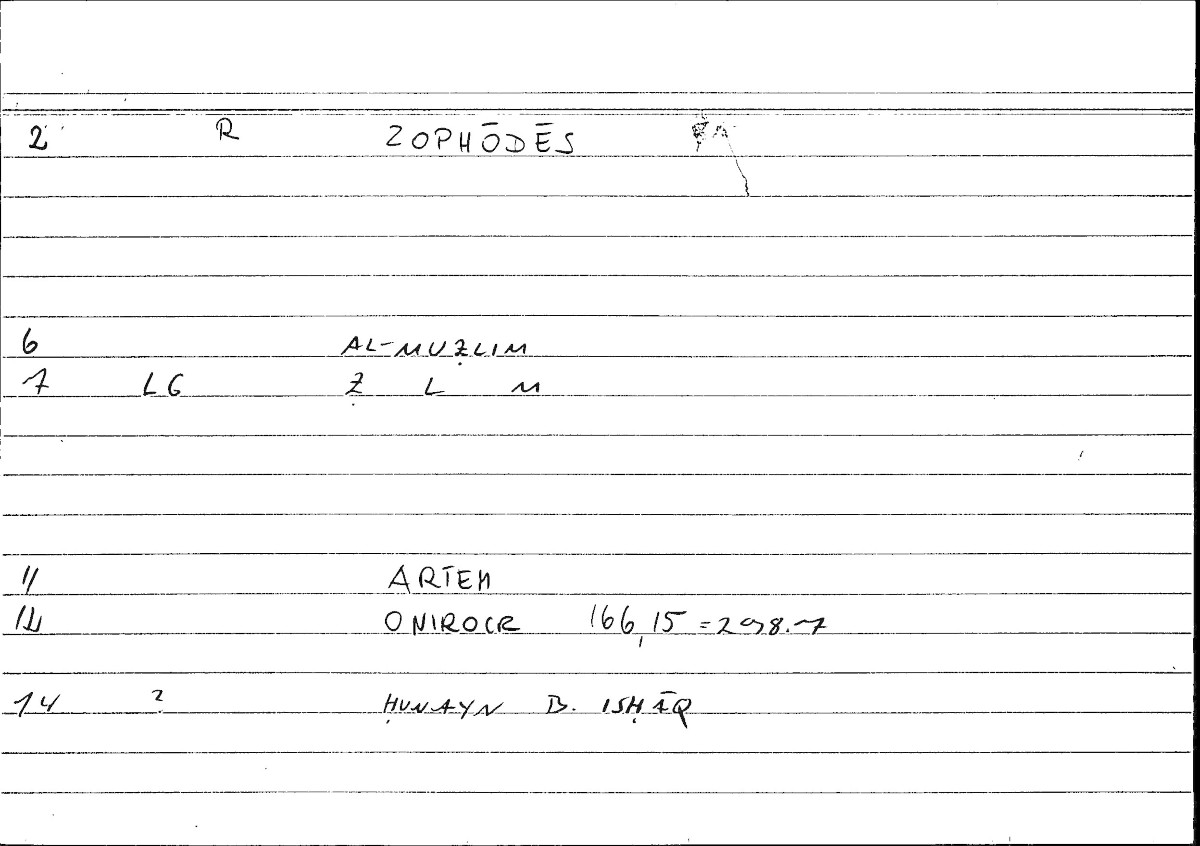 2 R ZOPHŌDĒS
6 AL-MUẒLIM
7 LG Ẓ L M
11 ARTEM
12 ONIROCR 166,15 = 298.7
14 ? ḤUNAYN B. ISḤĀQ